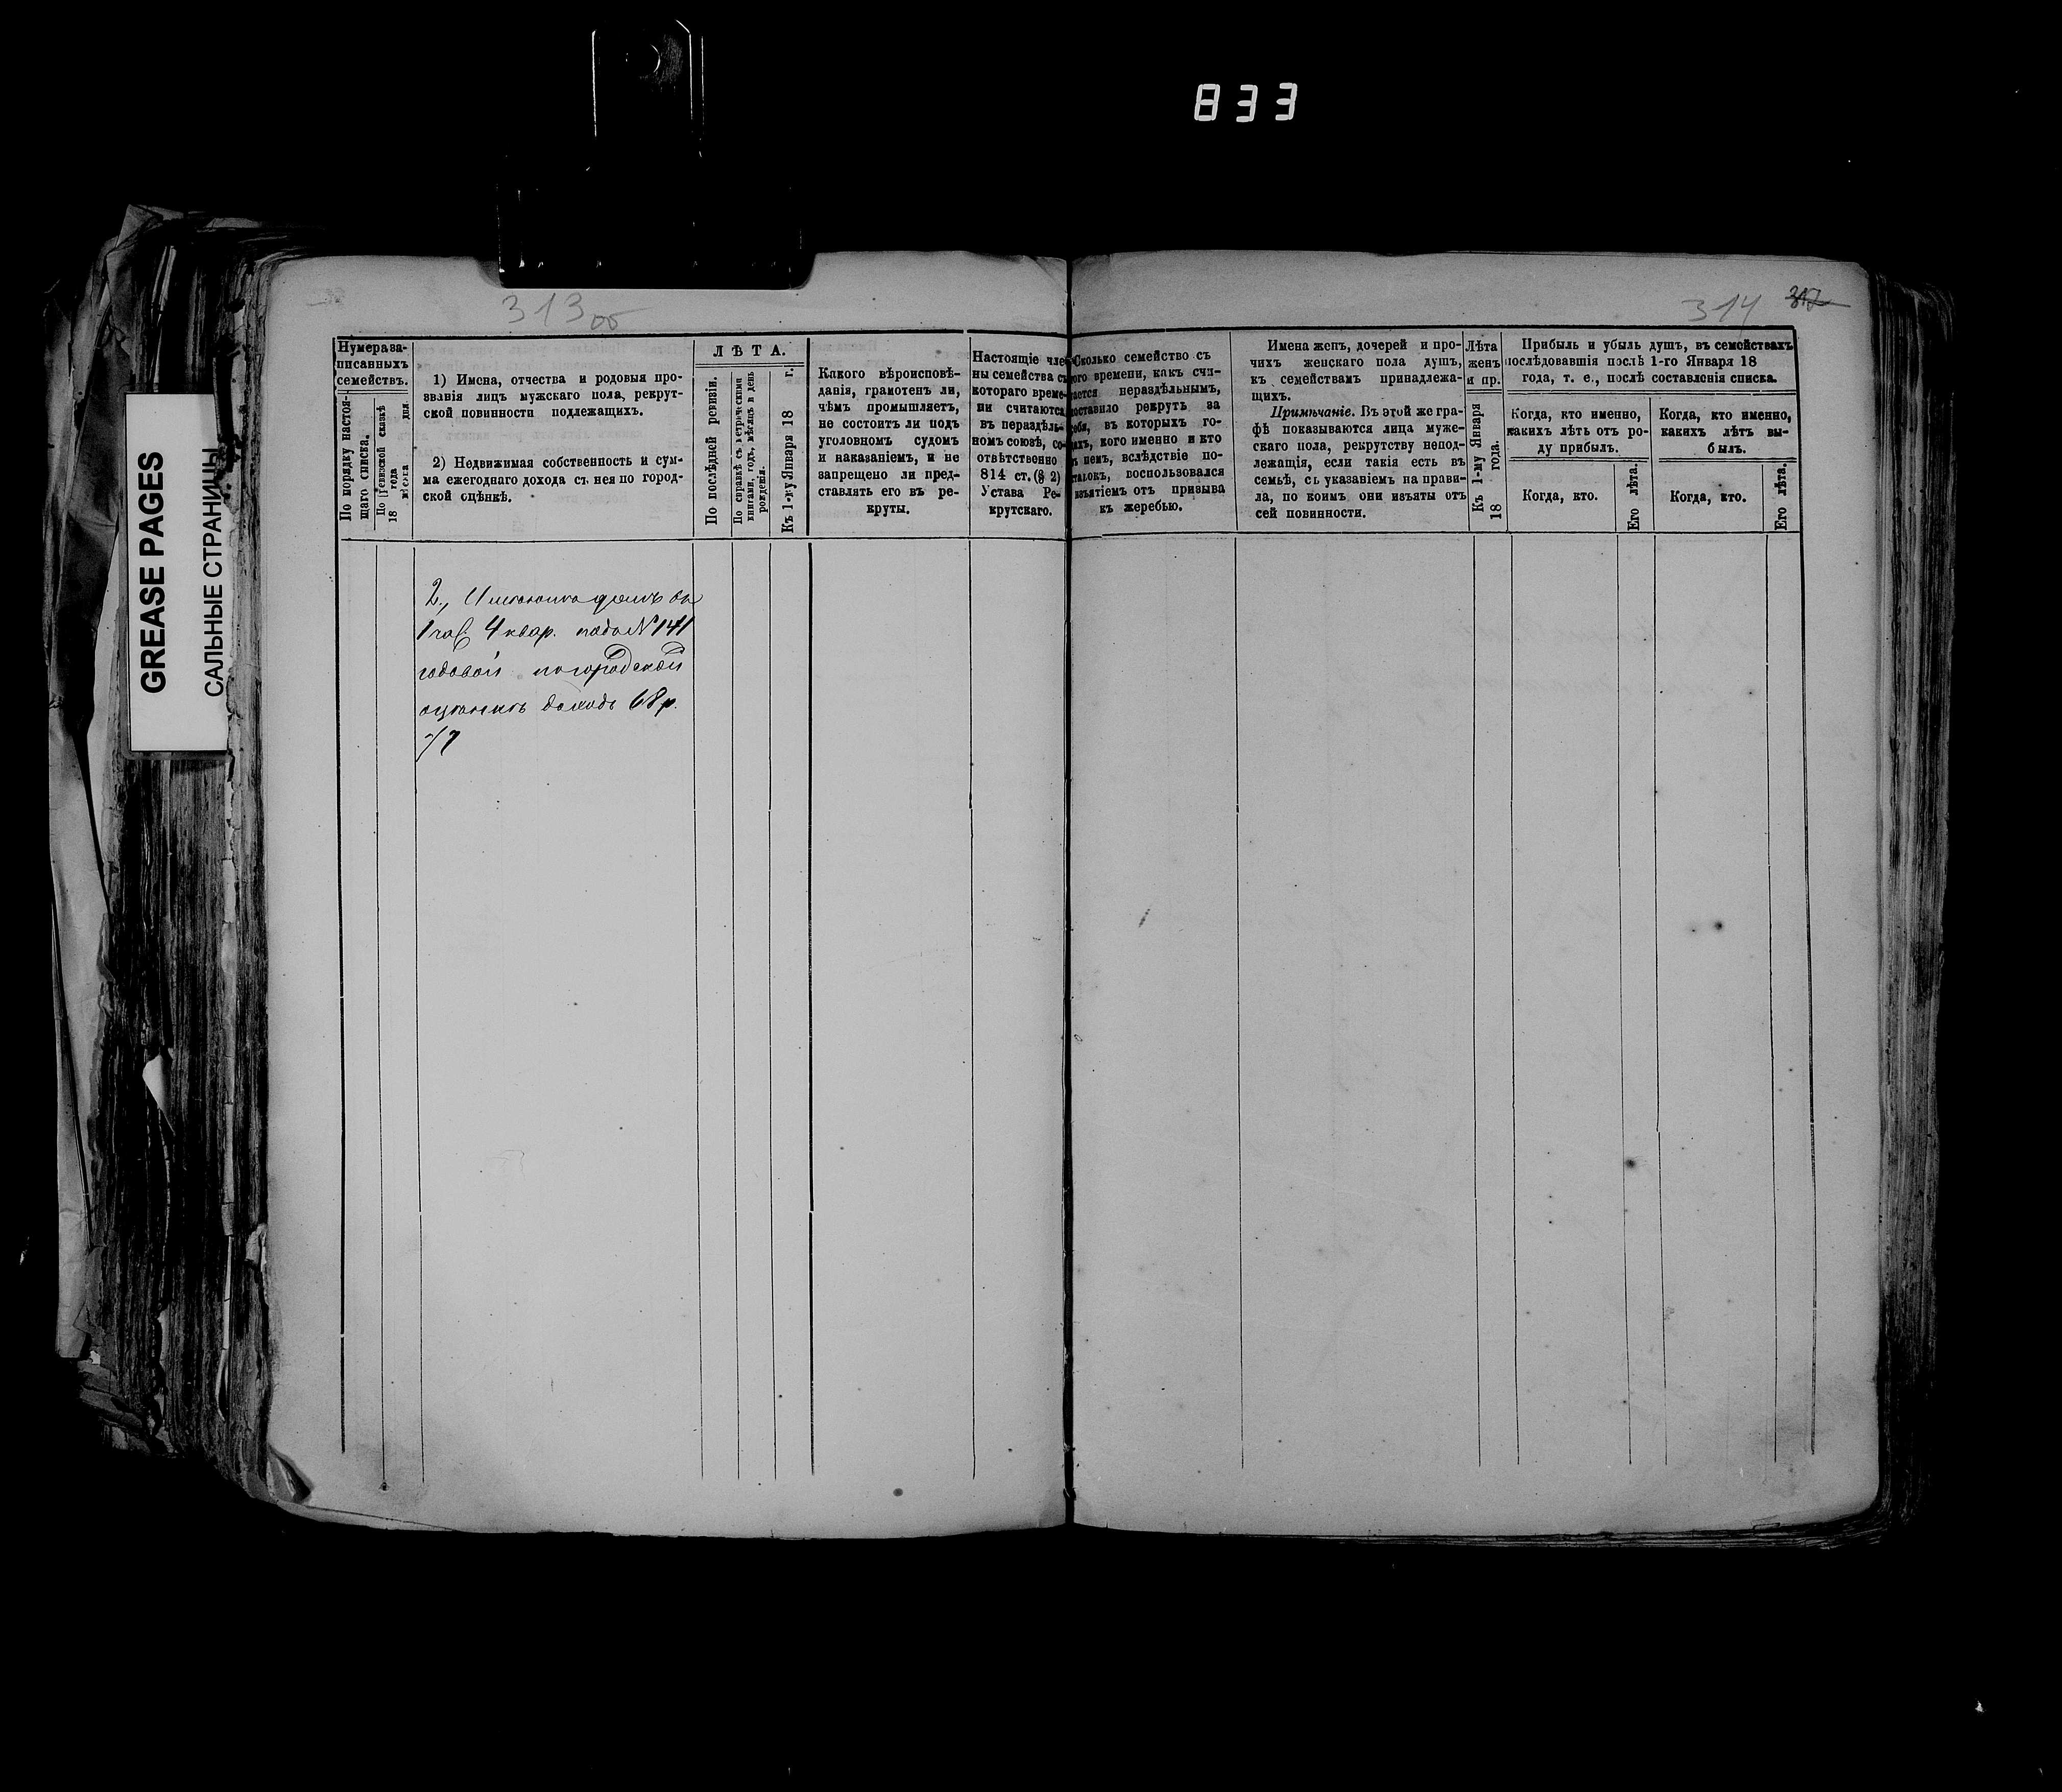 833
GREASE PAGES
САЛЬНЫЕ СТРАНИЦЫ
313 об
314
Нумера за-
писанныхъ
семействъ.
По порядку настоя-
щаго списка.
По Ревизской сказкѣ
18 года
мѣсяца дня.
1) Имена, отчества и родовыя про-
званія лицъ мужскаго пола, рекрут-
ской повинности подлежащихъ.
2) Недвижимая собственность и сум-
ма ежегоднаго дохода съ нея по город-
ской оцѣнкѣ.
ЛѢТА.
По послѣдней ревизіи.
По справкѣ съ метрическими
книгами, годъ, мѣсяцъ и день
рожденія.
Къ 1-му Января 18 г.
Какого вѣроисповѣ-
данія, грамотенъ ли,
чѣмъ промышляетъ,
не состоитъ ли подъ
уголовномъ судомъ
и наказаніемъ, и не
запрещено ли пред-
ставлять его въ ре-
круты.
Настоящіе чле-
ны семейства съ
котораго време-
ни считаются
въ нераздѣль-
номъ союзѣ, со-
отвѣтственно
814 ст. (§ 2)
Устава Ре-
крутскаго.
Сколько семейство съ
того времени, какъ счи-
тается нераздѣльнымъ,
поставило рекрутъ за
себя, въ которыхъ го-
дахъ, кого именно и кто
въ немъ, вслѣдствіе по-
ставокъ, воспользовался
изъятіемъ отъ призыва
къ жеребью.
Имена женъ, дочерей и про-
чихъ женскаго пола душъ,
къ семействамъ принадлежа-
щихъ.
Примѣчаніе. Въ этой же гра-
фѣ показываются лица муже-
скаго пола, рекрутству непод-
лежащія, если такія есть въ
семьѣ, съ указаніемъ на прави-
ла, по коимъ они изъяты отъ
сей повинности.
Лѣта
женъ
и пр.
Къ 1-му Января
18 года.
Прибыль и убыль душъ, въ семействахъ
послѣдовавшія послѣ 1-го Января 18
года, т. е., послѣ составленія списка.
Когда, кто именно,
какихъ лѣтъ отъ ро-
ду прибылъ.
Когда, кто.
Его лѣта.
Когда, кто именно,
какихъ лѣтъ вы-
былъ.
Когда, кто.
Его лѣта.
2., домъ въ
1 час. 4 квар. подъ № 141
годовой по городской
оцѣнкѣ доходъ 68 р.